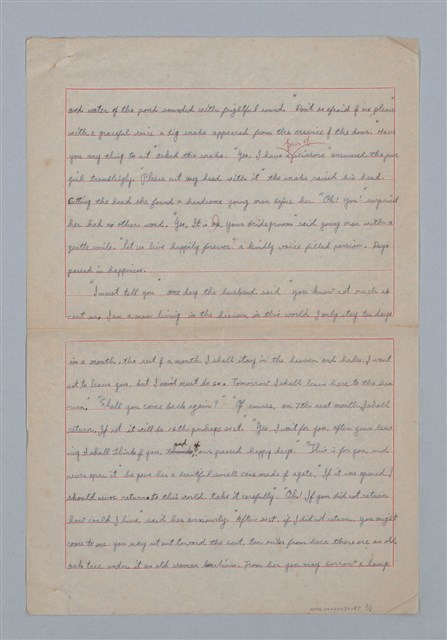 and water of the pond sounded with frightful sound. "Don't be afraid of me please"
with a graceful voice a big snake appeared from the crevice of the door. "Have
you any thing to cut" asked the snake. "Yes, I have a pair of scissors" answered the
girl tremblingly. "Please cut my head with it" the snake raised his head.
Cutting the head she found a handsome young man before her. "Oh! You!" surprised
her had no other word. "Yes, It is I your bridegroom" said young man with a
gentle smile. "let us live happily forever" a kindly voice filled pavilion. Days
passed in happiness.
"I must tell you" one day the husband said "you know not much about
me, I am a man living in the heaven in this world I only stay ten days
in a month, the rest of a month I shall stay in the heaven and hades. I want
not to leave you, but I must do so. Tomorrow I shall leave here to the hea
ven." "Shall you come back again?" "Of course, on 7th next month I shall
return, If not it will be 14th perhaps 21st." "Yes, I wait for you, after your leav
ing I shall think of you, and of our passed happy days." "This is for you and
never open it" he gave her a beautiful small case made of agate. "If it was opened I
should never return to this world. take it carefully." "Oh! If you did not return
how could I live" said her anxiously. "After 21st, if I did not return, you might
come to me you may set out toward the east, ten miles from here there are an old
oak tree under it an old woman . From her you may borrow a lamp